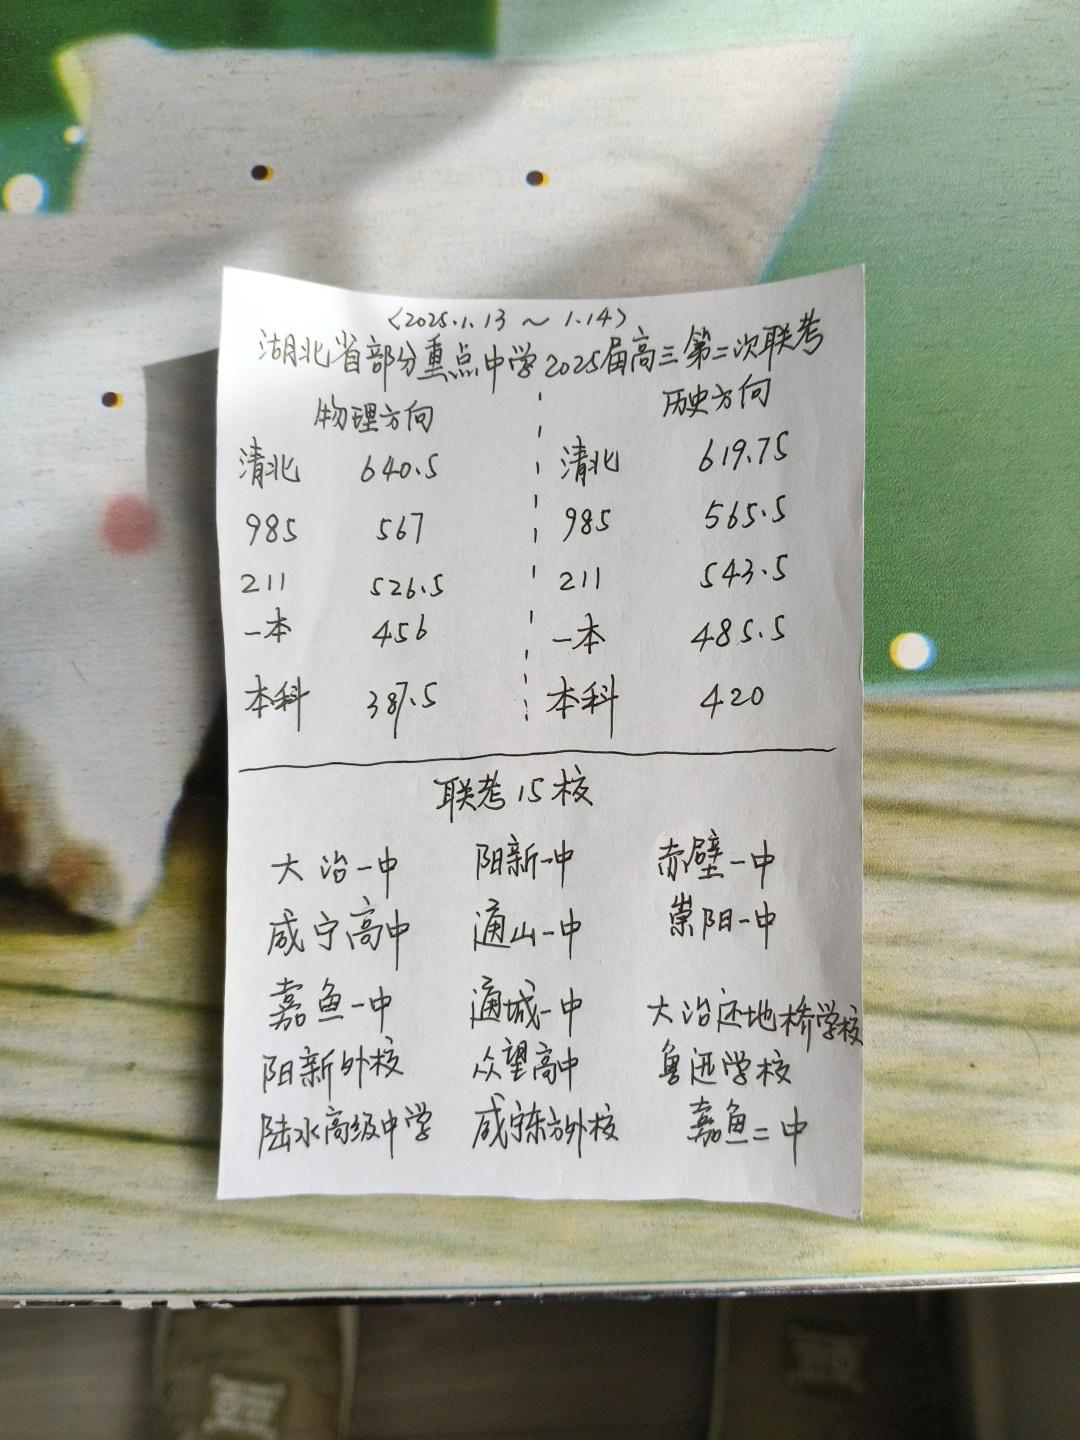 <2025.1.13 ~ 1.14>
湖北省部分重点中学2025届高三第二次联考
物理方向 历史方向
清北 640.5 清北 619.75
985 567 985 565.5
211 526.5 211 543.5
一本 456 一本 485.5
本科 387.5 本科 420
联考15校
大冶一中 阳新一中 赤壁一中
咸宁高中 通山一中 崇阳一中
嘉鱼一中 通城一中 大冶还地桥学校
阳新外校 众望高中 鲁迅学校
陆水高级中学 咸宁东方外校 嘉鱼二中